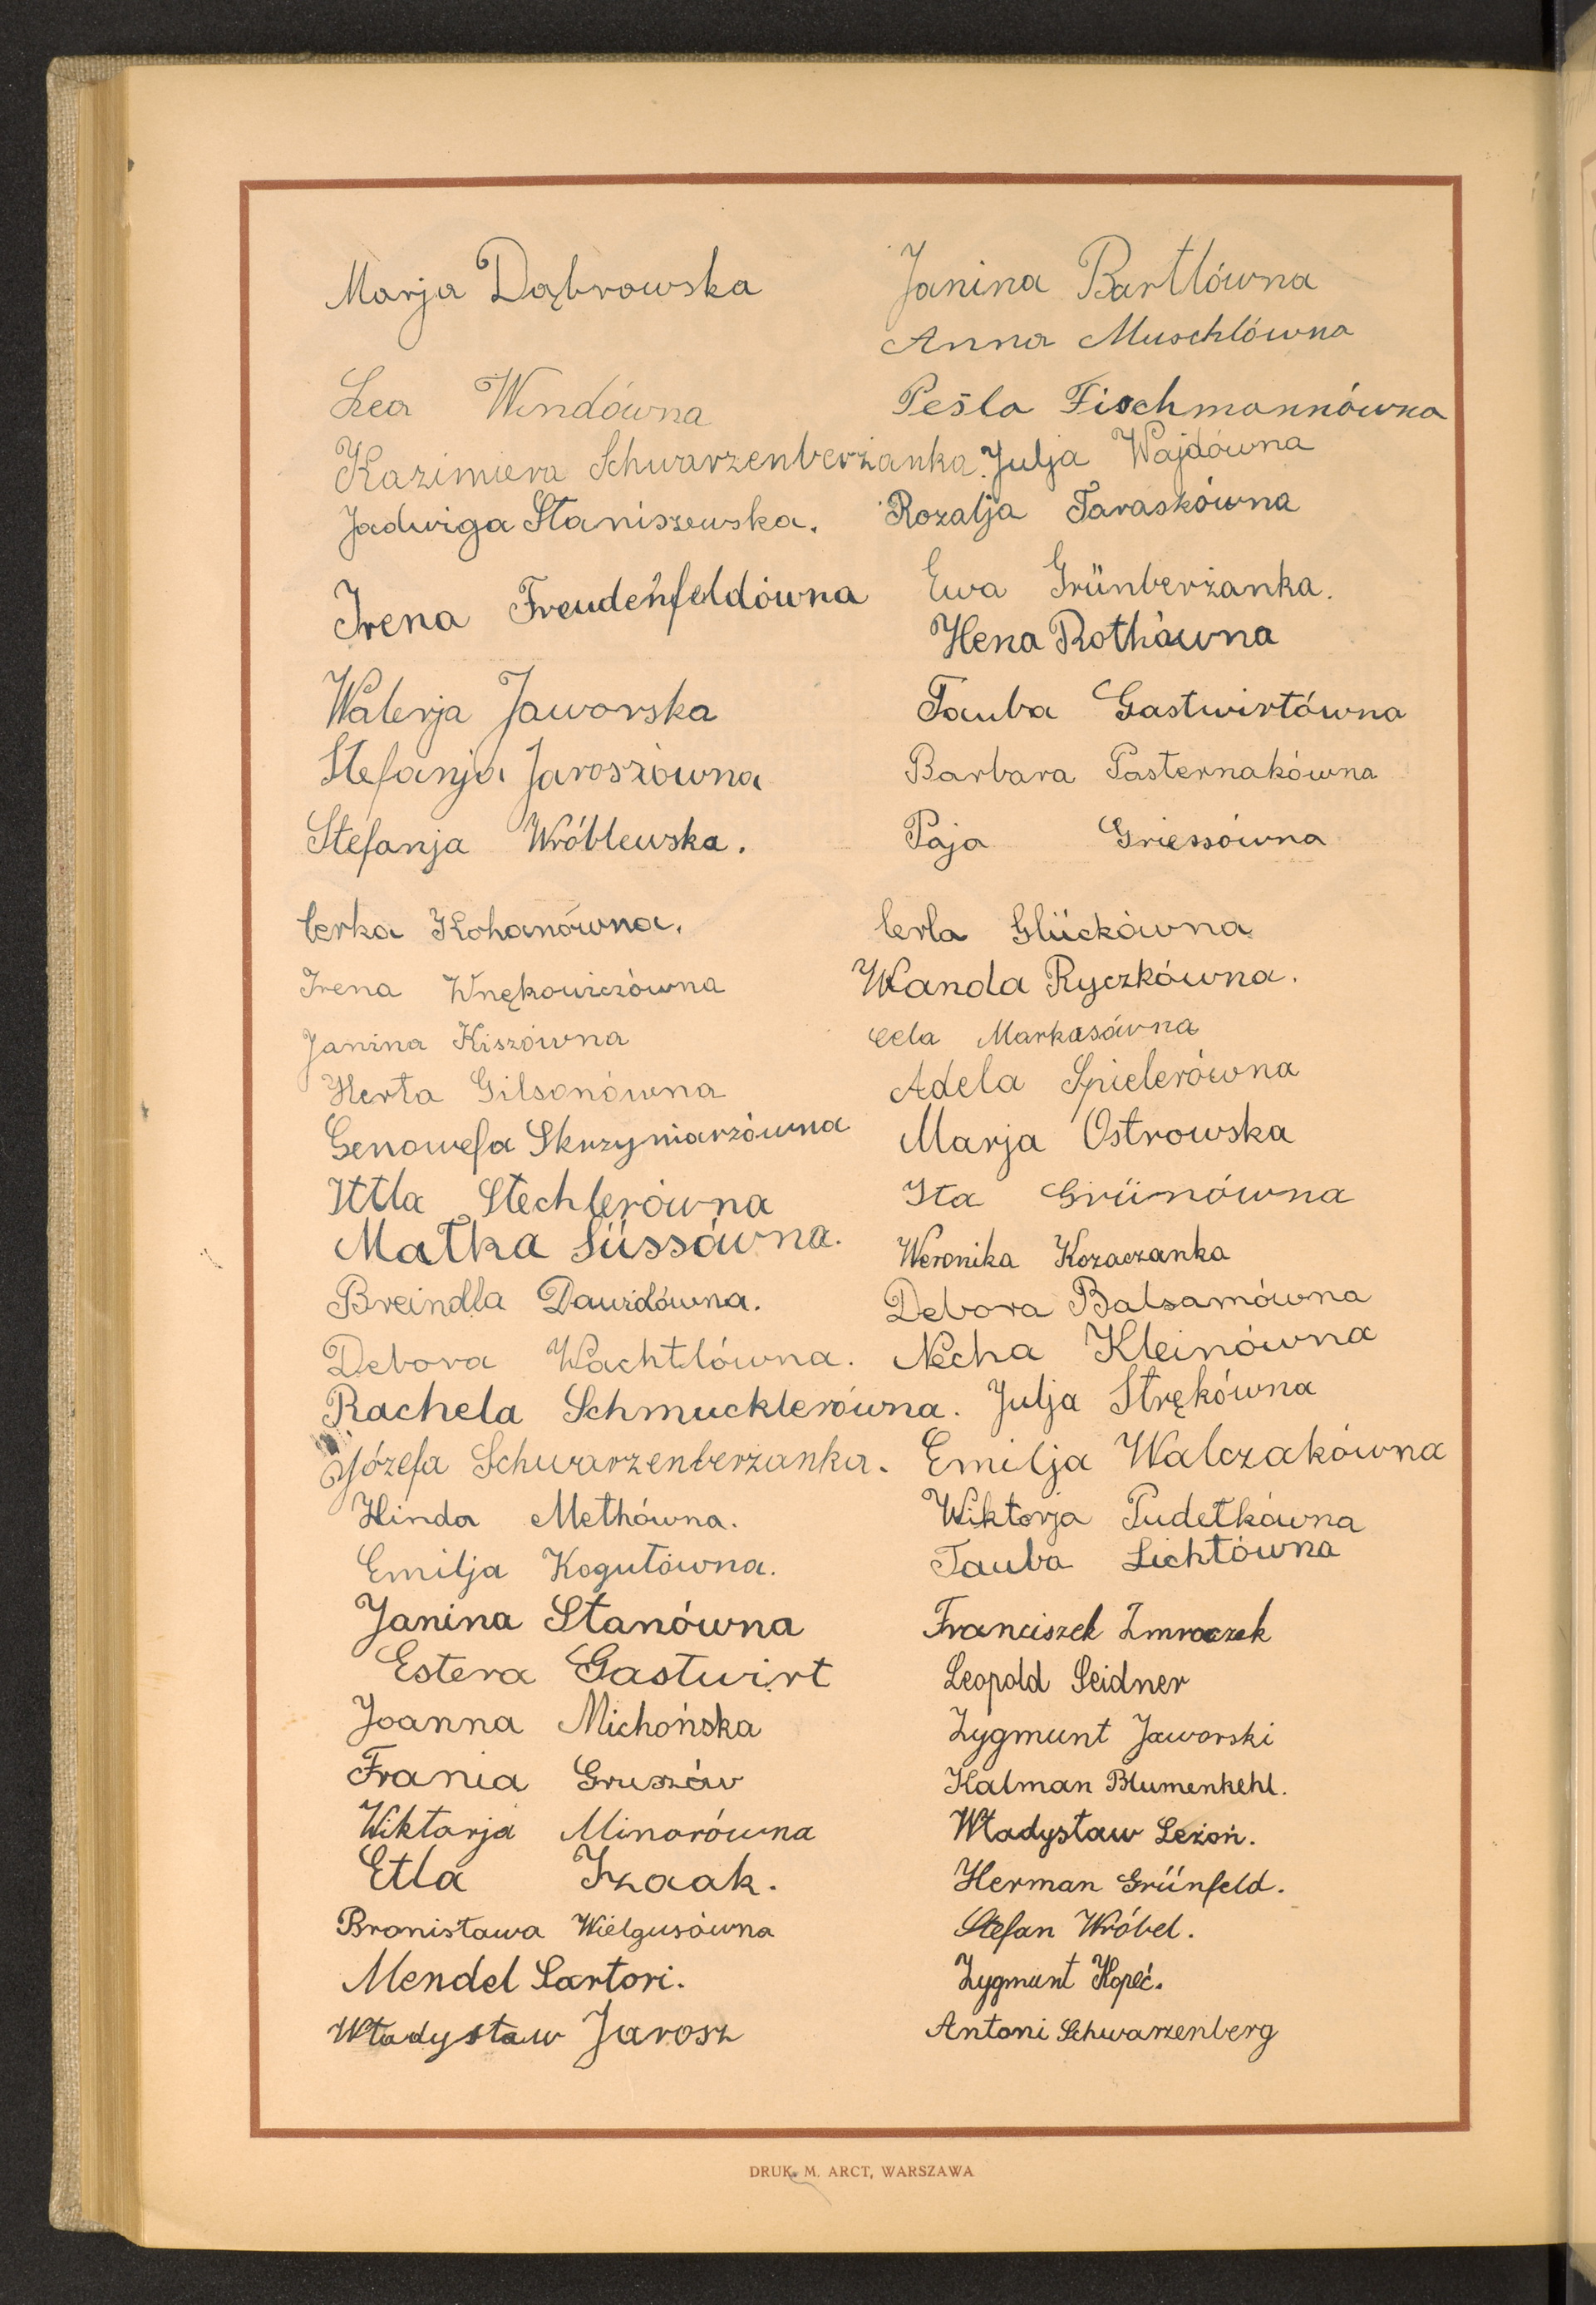 Marja Dąbrowska
Janina Bartlówna
Anna Muschlówna
Lea Windówna
Pesla Fischmannówna
Kazimiera Schwarzenberżanka.
Julja Wajdówna
Jadwiga Staniszewska.
Rozalja Taraskówna
Irena Freudenfeldówna
Ewa Grünberżanka.
Hena Rothówna
Walerja Jaworska
Tauba Gastwirtówna
Stefanja Jaroszówna
Barbara Pasternakówna
Stefanja Wróblewska.
Paja Griessówna
Cerka Kohanówna.
Cerla Glückówna
Irena Wnękowiczówna
Wanda Ryczkówna.
Janina Kiszówna
Cela Markusówna
Herta Gilsonówna
Adela Spielerówna
Genowefa Skrzyniarzówna
Marja Ostrowska
Ittla Stechlerówna
Ita Grünówna
Matka Süssówna.
Weronika Kozaczanka
Breindla Dawidówna.
Debora Balsamówna
Debora Wachtlówna.
Necha Kleinówna
Rachela Schmucklerówna.
Julja Strękówna
Józefa Schwarzenberzanka.
Emilja Walczakówna
Hinda Methówna.
Wiktorja Pudełkówna
Emilja Kogutówna.
Tauba Lichtówna
Janina Stanówna
Franciszek Zmraczek
Estera Gastwirt
Leopold Seidner
Joanna Michońska
Zygmunt Jaworski
Frania Gruszów
Kalman Blumenkehl.
Wiktorja Minorówna
Władysław Leżoń.
Etla Izaak.
Herman Grünfeld.
Bronisława Wielgusówna
Stefan Wróbel.
Mendel Sartori.
Zygmunt Kopeć.
Władysław Jarosz
Antoni Schwarzenberg
DRUK. M. ARCT, WARSZAWA